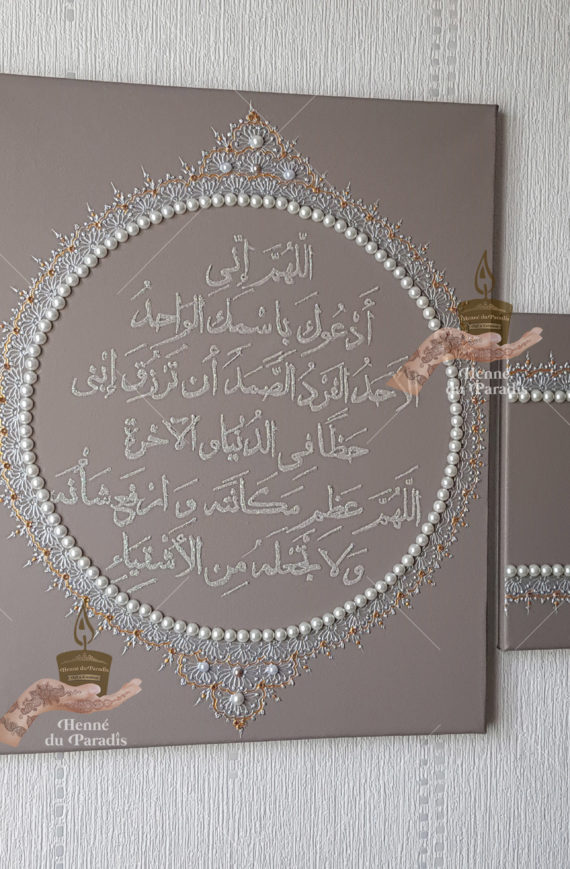 اللّهُمَّ إنّي
أَدْعُوكَ بِاسْمِكَ الوَاحِدُ
الأَحَدُ الفَرْدُ الصَّمَدُ أن تَرْزُقَ إبْنى
حَظًّا في الدُنْيَا و الآخرة
اللَّهُمَّ عَظِّمِ مَكَانَتَه و ارفع شَأنَه
وَلا تَجْعَلهُ مِنَ الأشْقِيَاءِ
Henné du Paradis
Henné
du Paradis
Henné du Paradis
Henné
du Paradis